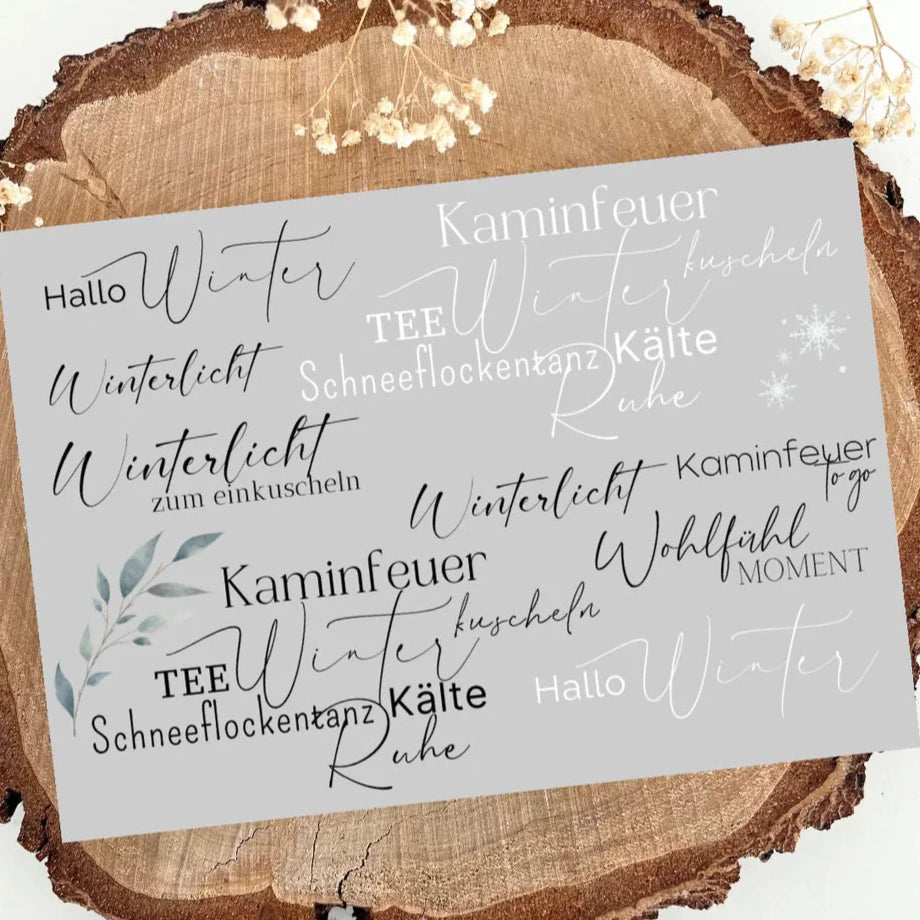 Hallo Winter
Winterlicht
Winterlicht
zum einkuscheln
Kaminfeuer
Winter kuscheln
TEE
Schneeflockentanz Kälte
Ruhe
Winterlicht
Kaminfeuer
to go
Wohlfühl
MOMENT
Kaminfeuer
Winter kuscheln
TEE
Schneeflockentanz Kälte
Ruhe
Hallo Winter